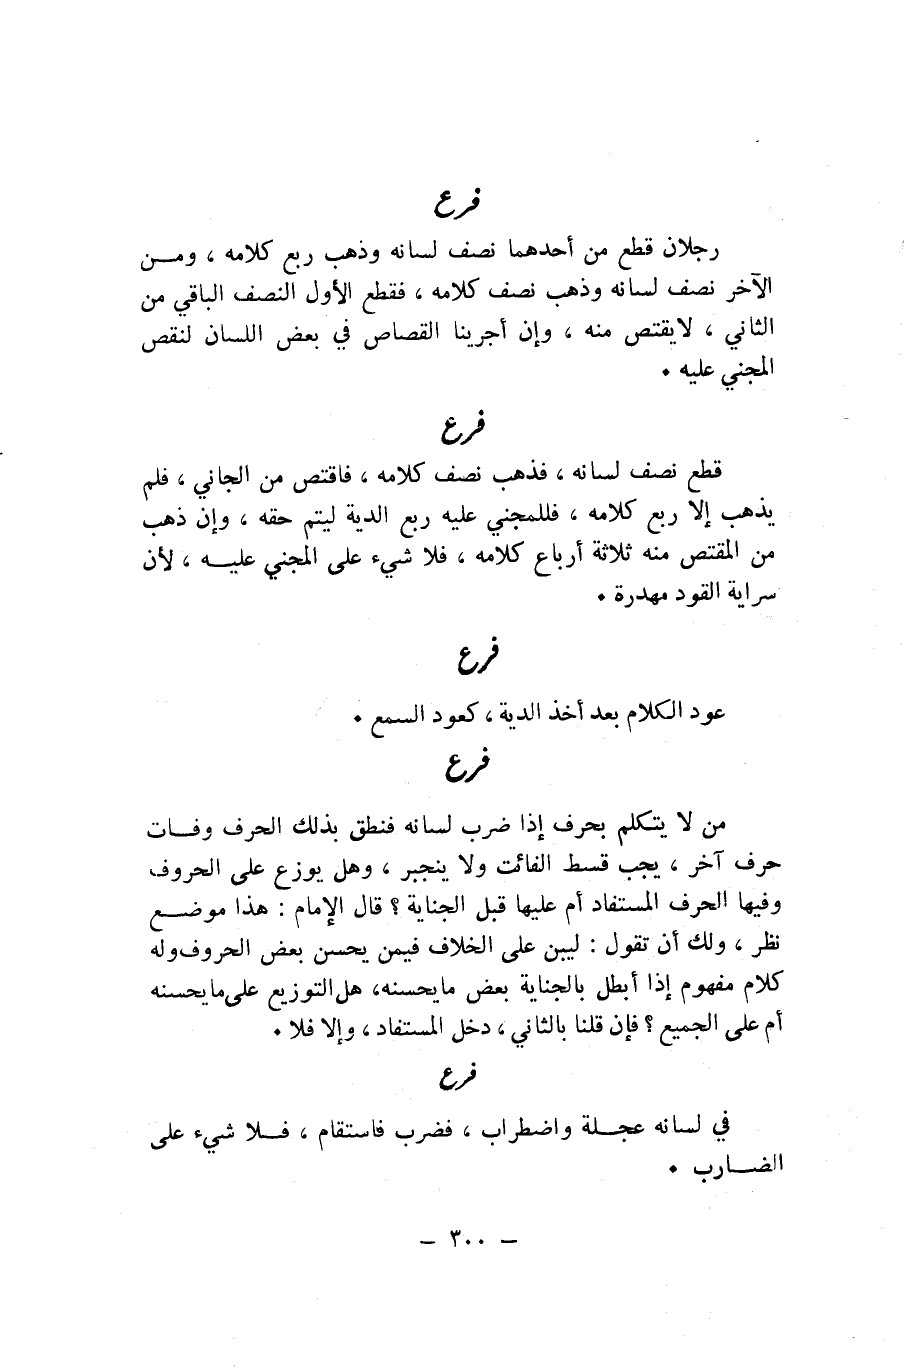 فرع
رجلان قطع من أحدهما نصف لسانه وذهب ربع كلامه ، ومن
الآخر نصف لسانه وذهب نصف كلامه ، فقطع الأول النصف الباقي من
الثاني ، لايقتص منه ، وإن أجرينا القصاص في بعض اللسان لنقص
المجني عليه .
فرع
قطع نصف لسانه ، فذهب نصف كلامه ، فاقتص من الجاني ، فلم
يذهب إلا ربع كلامه ، فللمجني عليه ربع الدية ليتم حقه ، وإن ذهب
من المقتص منه ثلاثة أرباع كلامه ، فلا شيء على المجني عليه ، لأن
سراية القود مهدرة .
فرع
عود الكلام بعد أخذ الدية ، كعود السمع .
فرع
من لا يتكلم بحرف إذا ضرب لسانه فنطق بذلك الحرف وفات
حرف آخر ، يجب قسط الفائت ولا ينجبر ، وهل يوزع على الحروف
وفيها الحرف المستفاد أم عليها قبل الجناية ؟ قال الإمام : هذا موضع
نظر ، ولك أن تقول : ليبن على الخلاف فيمن يحسن بعض الحروف وله
كلام مفهوم إذا أبطل بالجناية بعض مايحسنه، هل التوزيع على مايحسنه
أم على الجميع ؟ فإن قلنا بالثاني ، دخل المستفاد ، وإلا فلا .
فرع
في لسانه عجلة واضطراب ، فضرب فاستقام ، فلا شيء على
الضارب .
– ٣٠٠ –